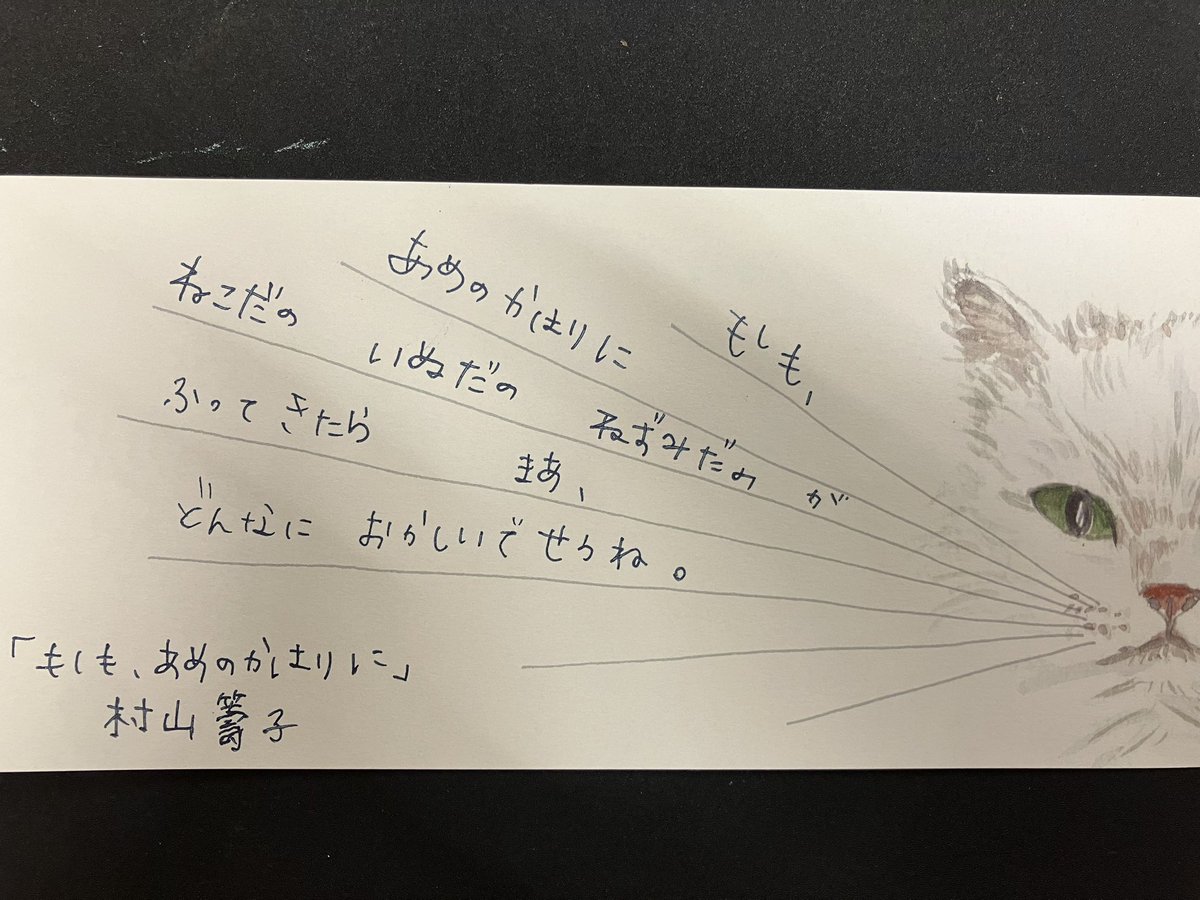 もしも、
あめの かはりに
ねこだの いぬだの ねずみだの が
ふって きたら まあ、
どんなに おかしいでせうね。
「もしも、あめのかはりに」
村山籌子